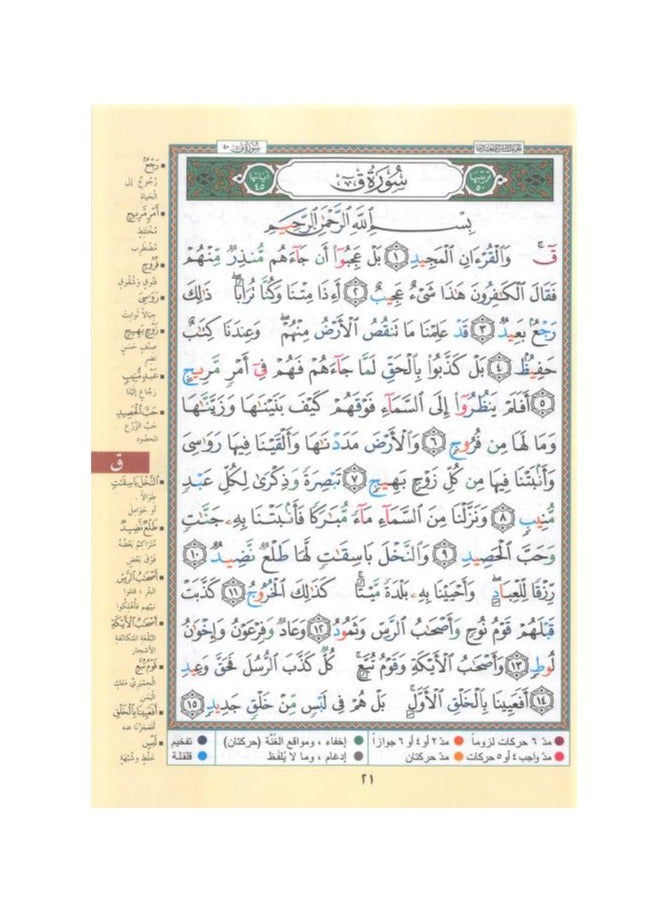 سُورَةُ قٓ ٥٠
ترتيبها ٥٠
سُورَةُ قٓ
آياتها ٤٥
بِسْمِ ٱللَّهِ ٱلرَّحْمَٰنِ ٱلرَّحِيمِ
قٓۚ وَٱلْقُرْءَانِ ٱلْمَجِيدِ ١ بَلْ عَجِبُوٓا۟ أَن جَآءَهُم مُّنذِرٌ مِّنْهُمْ
فَقَالَ ٱلْكَٰفِرُونَ هَٰذَا شَىْءٌ عَجِيبٌ ٢ أَءِذَا مِتْنَا وَكُنَّا تُرَابًاۖ ذَٰلِكَ
رَجْعٌۢ بَعِيدٌ ٣ قَدْ عَلِمْنَا مَا تَنقُصُ ٱلْأَرْضُ مِنْهُمْۖ وَعِندَنَا كِتَٰبٌ
حَفِيظٌۢ ٤ بَلْ كَذَّبُوا۟ بِٱلْحَقِّ لَمَّا جَآءَهُمْ فَهُمْ فِىٓ أَمْرٍ مَّرِيجٍ
٥ أَفَلَمْ يَنظُرُوٓا۟ إِلَى ٱلسَّمَآءِ فَوْقَهُمْ كَيْفَ بَنَيْنَٰهَا وَزَيَّنَّٰهَا
وَمَا لَهَا مِن فُرُوجٍ ٦ وَٱلْأَرْضَ مَدَدْنَٰهَا وَأَلْقَيْنَا فِيهَا رَوَٰسِىَ
وَأَنۢبَتْنَا فِيهَا مِن كُلِّ زَوْجٍۭ بَهِيجٍ ٧ تَبْصِرَةً وَذِكْرَىٰ لِكُلِّ عَبْدٍ
مُّنِيبٍ ٨ وَنَزَّلْنَا مِنَ ٱلسَّمَآءِ مَآءً مُّبَٰرَكًا فَأَنۢبَتْنَا بِهِۦ جَنَّٰتٍ
وَحَبَّ ٱلْحَصِيدِ ٩ وَٱلنَّخْلَ بَاسِقَٰتٍ لَّهَا طَلْعٌ نَّضِيدٌ ١٠
رِّزْقًا لِّلْعِبَادِۖ وَأَحْيَيْنَا بِهِۦ بَلْدَةً مَّيْتًاۚ كَذَٰلِكَ ٱلْخُرُوجُ ١١ كَذَّبَتْ
قَبْلَهُمْ قَوْمُ نُوحٍ وَأَصْحَٰبُ ٱلرَّسِّ وَثَمُودُ ١٢ وَعَادٌ وَفِرْعَوْنُ وَإِخْوَٰنُ
لُوطٍ ١٣ وَأَصْحَٰبُ ٱلْأَيْكَةِ وَقَوْمُ تُبَّعٍۚ كُلٌّ كَذَّبَ ٱلرُّسُلَ فَحَقَّ وَعِيدِ
١٤ أَفَعَيِينَا بِٱلْخَلْقِ ٱلْأَوَّلِۚ بَلْ هُمْ فِى لَبْسٍ مِّنْ خَلْقٍ جَدِيدٍ ١٥
رَجْعٌ
رُجُوعٌ إلى
الحَيَاةِ
أَمْرٍ مَرِيجٍ
مُخْتَلِطٍ
مُضْطَرِبٍ
فُرُوجٍ
فُتُوقٍ وَشُقُوقٍ
رَوَاسِيَ
جِبَالاً ثَوابِتَ
زَوْجٍ بَهِيجٍ
صِنْفٍ حَسَنٍ
نَضِرٍ
عَبْدٍ مُنِيبٍ
رَجَّاعٍ إِلَيْنَا
حَبَّ الْحَصِيدِ
حَبَّ الزَّرْعِ
المحصُودِ
ق
النَّخْلَ بَاسِقَاتٍ
طِوَالاً ،
أو حَوَامِلَ
طَلْعٌ نَضِيدٌ
مُتَرَاكِمٌ بَعْضُهُ
فَوْقَ بَعْضٍ
أَصْحَابُ الرَّسِّ
البئر ؛ قتلوا
نبيهم فأُهْلِكُوا
أَصْحَابُ الأَيْكَةِ
البُقْعَةِ المتكاثفة
الأشجار
قَوْمُ تُبَّعٍ
الحِمْيَرِيِّ مَلِكِ
اليَمَنِ
أَفَعَيِينَا بِالْخَلْقِ
أفَعَجَزْنَا عنه
لَبْسٍ
خَلْطٍ وشُبْهَةٍ
مدّ ٦ حركات لزوماً مدّ ٢ أو ٤ أو ٦ جوازاً إخفاء ، ومواقع الغُنَّة (حركتان) تفخيم
مدّ واجب ٤ أو ٥ حركات مدّ حركتان إدغام ، وما لا يُلفَظ قلقلة
٢١